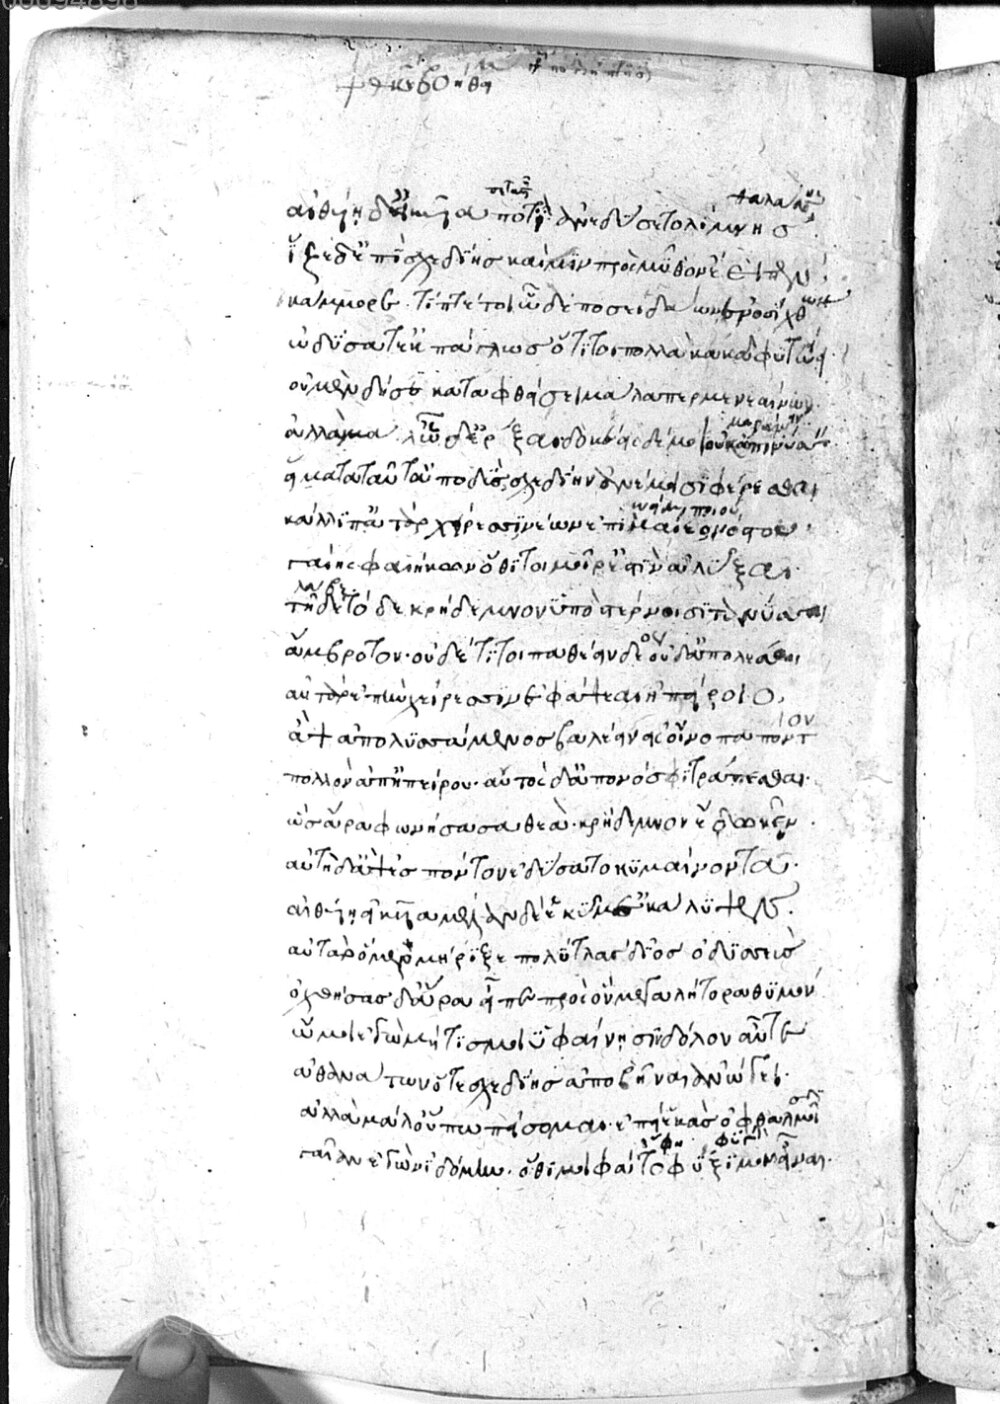 αἰθυίῃ δ' εἰκυῖα ποτῇ ἀνεδύσετο λίμνης
ἷξε δ' ἐπὶ σχεδίης καί μιν πρὸς μῦθον ἔειπεν
κάμμορε τίπτέ τοι ὧδε ποσειδάων ἐνοσίχθων
ὠδύσατ' ἐκπάγλως ὅτι τοι πολλὰ κακὰ φυτεύει
οὐ μὲν δή σε καταφθείσει μάλα περ μενεαίνων
ἀλλὰ μάλ' ὧδ' ἔρξαι δοκέεις δέ μοι οὐκ ἀπινύσσειν
εἵματα ταῦτ' ἀποδὺς σχεδίην ἀνέμοισι φέρεσθαι
κάλλιπ' ἀτὰρ χείρεσσι νέων ἐπιμαίεο νόστου
γαίης φαιήκων ὅθι τοι μοῖρ' ἐστὶν ἀλύξαι
τῆ δὲ τόδε κρήδεμνον ὑπὸ στέρνοισι τανύσσαι
ἄμβροτον οὐδέ τί τοι παθέειν δέος οὐδ' ἀπολέσθαι
αὐτὰρ ἐπὴν χείρεσσιν ἐφάψεαι ἠπείροιο
ἂψ ἀπολυσσάμενος βαλέειν εἰς οἴνοπα πόντον
πολλὸν ἀπ' ἠπείρου αὐτὸς δ' ἀπονόσφι τραπέσθαι
ὣς ἄρα φωνήσασα θεὰ κρήδεμνον ἔδωκεν
αὐτὴ δ' ἂψ ἐς πόντον ἐδύσατο κυμαίνοντα
αἰθυίῃ εἰκυῖα μέλαν δέ ἑ κῦμ' ἐκάλυψεν
αὐτὰρ ὁ μερμήριξε πολύτλας δῖος ὀδυσσεύς
ὀχθήσας δ' ἄρα εἶπε πρὸς ὃν μεγαλήτορα θυμόν
ὤμοι ἐγὼ μή τίς μοι ὑφαίνῃσιν δόλον αὖτε
ἀθανάτων ὅτε σχεδίης ἀποβῆναι ἀνώγει
ἀλλὰ μάλ' οὔπω πείσομαι ἐπεὶ ἑκὰς ὀφθαλμοῖσι
γαῖαν ἐγὼν ἰδόμην ὅθι μοι φάτο φύξιμον εἶναι